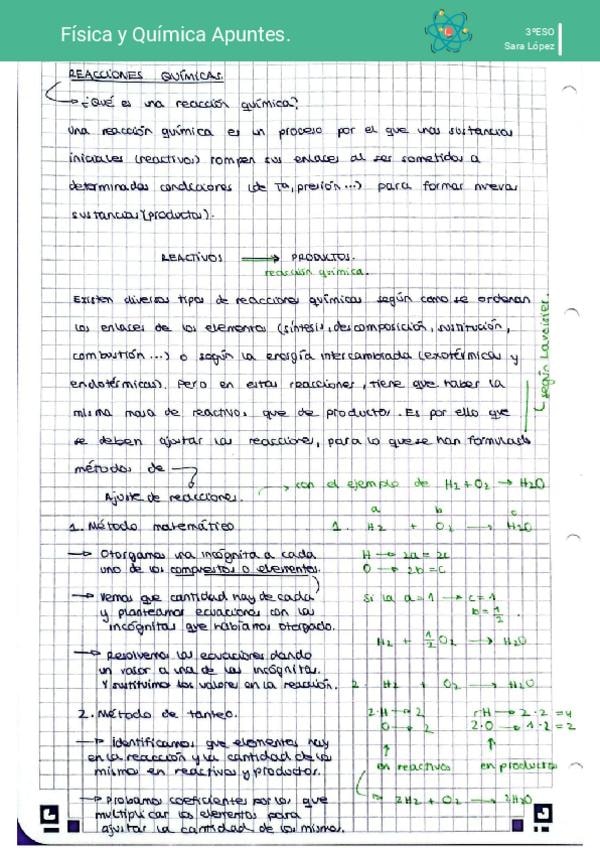 Física y Química Apuntes.
3ºESO
Sara López
REACCIONES QUÍMICAS.
¿Qué es una reacción química?
Una reacción química es un proceso por el que unas sustancias
iniciales (reactivos) rompen sus enlaces al ser sometidos a
determinadas condiciones (de Tª, presión...) para formar nuevas
sustancias (productos).
REACTIVOS → PRODUCTOS.
reacción química.
Existen diversos tipos de reacciones químicas según como se ordenan
los enlaces de los elementos (síntesis, descomposición, sustitución,
combustión...) o según la energía intercambiada (exotérmicas y
endotérmicas). Pero en estas reacciones, tiene que haber la
misma masa de reactivos que de productos. Es por ello que
se deben ajustar las reacciones, para lo que se han formulado
métodos de
según Lavoisier.
Ajuste de reacciones.
con el ejemplo de H2 + O2 → H2O
1. Método matemático.
a b c
1. H2 + O2 → H2O
→ Otorgamos una incógnita a cada
uno de los compuestos o elementos.
H → 2a = 2c
O → 2b = c
→ Vemos que cantidad hay de cada
y planteamos ecuaciones con las
incógnitas que habíamos otorgado.
Si la a = 1 → c = 1
b = 1/2
H2 + 1/2 O2 → H2O
→ Resolvemos las ecuaciones dando
un valor a una de las incógnitas.
Y sustituimos los valores en la reacción.
2. H2 + O2 → H2O
2. Método de tanteo.
2·H → 2 H → 2·2 = 4
O → 2 2·O → 1·2 = 2
→ Identificamos que elementos hay
en la reacción y la cantidad de los
mismos en reactivos y productos.
en reactivos en productos
→ Probamos coeficientes por los que
multiplicar los elementos para
ajustar la cantidad de los mismos.
2H2 + O2 → 2H2O